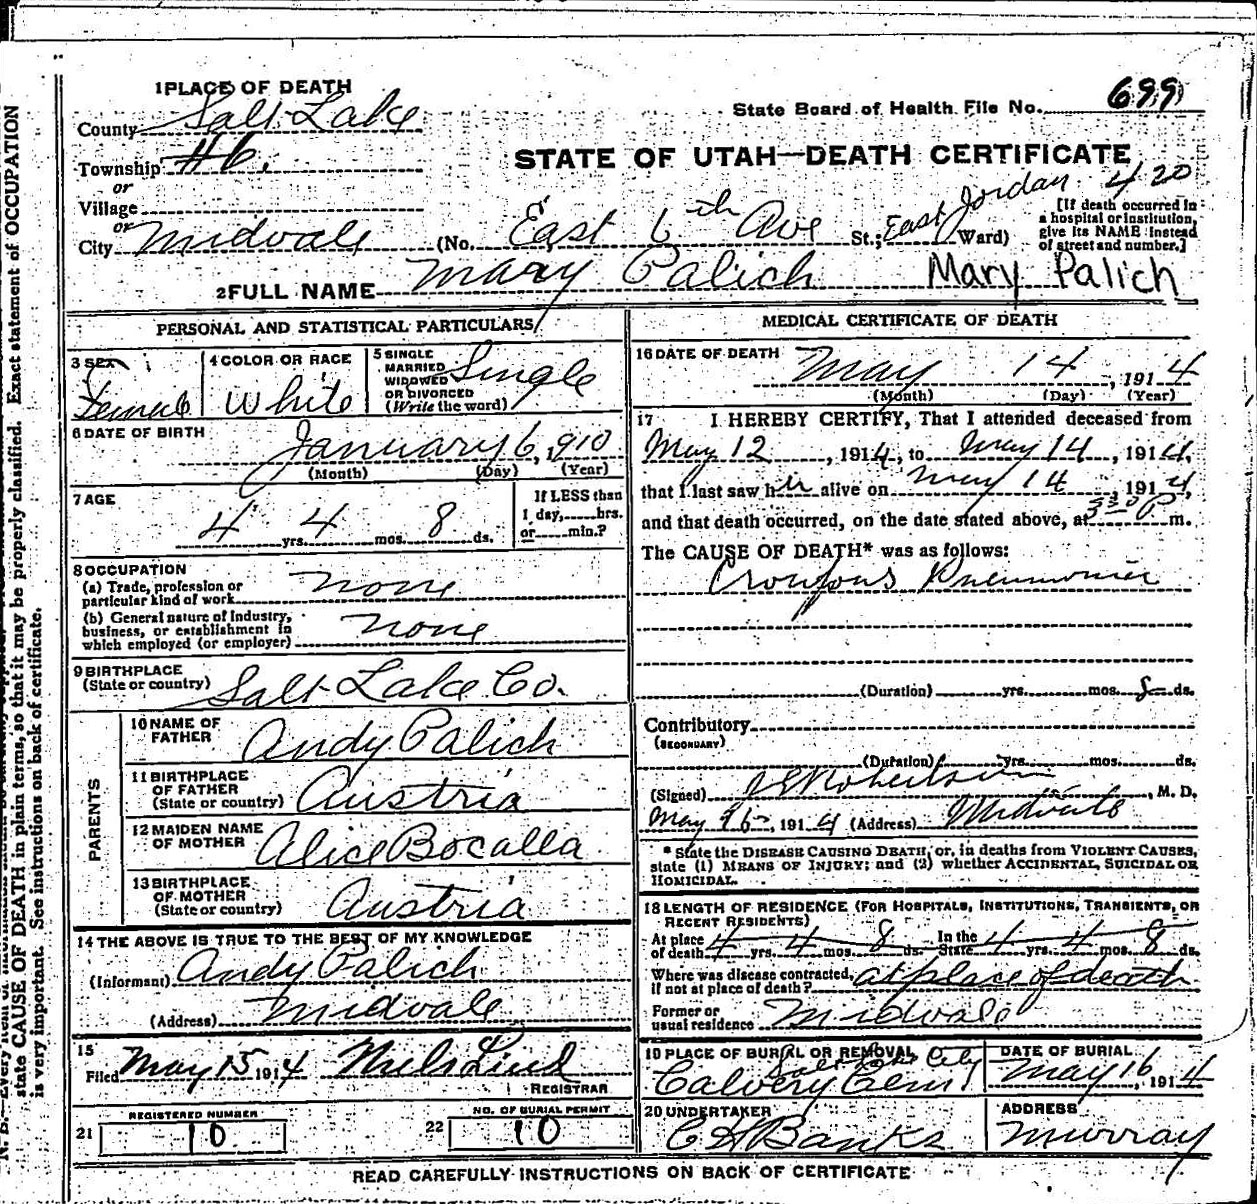 1 PLACE OF DEATH
County Salt Lake
State Board of Health File No. 699
Township #6.
STATE OF UTAH—DEATH CERTIFICATE
or
Village
or
City Midvale (No. East 6th Ave St.; East Jordan 420 Ward)
[If death occurred in
a hospital or institution,
give its NAME instead
of street and number.]
2 FULL NAME Mary Palich Mary Palich
PERSONAL AND STATISTICAL PARTICULARS
3 SEX Female
4 COLOR OR RACE White
5 SINGLE
MARRIED
WIDOWED
OR DIVORCED
(Write the word) Single
6 DATE OF BIRTH
January 6, 1910
(Month) (Day) (Year)
7 AGE
4 yrs. 4 mos. 8 ds.
If LESS than
1 day, hrs.
or min.?
8 OCCUPATION
(a) Trade, profession or
particular kind of work none
(b) General nature of Industry,
business, or establishment in
which employed (or employer) none
9 BIRTHPLACE
(State or country) Salt Lake Co.
PARENTS
10 NAME OF
FATHER Andy Palich
11 BIRTHPLACE
OF FATHER
(State or country) Austria
12 MAIDEN NAME
OF MOTHER Alice Bocalla
13 BIRTHPLACE
OF MOTHER
(State or country) Austria
14 THE ABOVE IS TRUE TO THE BEST OF MY KNOWLEDGE
(Informant) Andy Palich
(Address) Midvale
15
Filed May 15 1914 Niels Lind
REGISTRAR
REGISTERED NUMBER
21 10
NO. OF BURIAL PERMIT
22 10
MEDICAL CERTIFICATE OF DEATH
16 DATE OF DEATH
May 14, 1914
(Month) (Day) (Year)
17 I HEREBY CERTIFY, That I attended deceased from
May 12, 1914, to May 14, 1914,
that I last saw her alive on May 14, 1914,
and that death occurred, on the date stated above, at 5 30 P m.
The CAUSE OF DEATH* was as follows:
Croupous Pneumonia
(Duration) yrs. mos. ds.
Contributory
(SECONDARY)
(Duration) yrs. mos. ds.
(Signed) Robertson, M. D.
May, 1914 (Address) Midvale
* State the DISEASE CAUSING DEATH, or, in deaths from VIOLENT CAUSES,
state (1) MEANS OF INJURY; and (2) whether ACCIDENTAL, SUICIDAL OR
HOMICIDAL.
18 LENGTH OF RESIDENCE (FOR HOSPITALS, INSTITUTIONS, TRANSIENTS, OR
RECENT RESIDENTS)
At place
of death 4 yrs. 4 mos. 8 ds. In the
State 4 yrs. 4 mos. 8 ds.
Where was disease contracted,
if not at place of death? at place of death
Former or
usual residence Midvale
19 PLACE OF BURIAL OR REMOVAL Salt Lake City
Calvery Cem
DATE OF BURIAL
May 16, 1914
20 UNDERTAKER
C H Banks
ADDRESS
Murray
READ CAREFULLY INSTRUCTIONS ON BACK OF CERTIFICATE
state CAUSE OF DEATH in plain terms, so that it may be properly classified. Exact statement of OCCUPATION
is very important. See instructions on back of certificate.